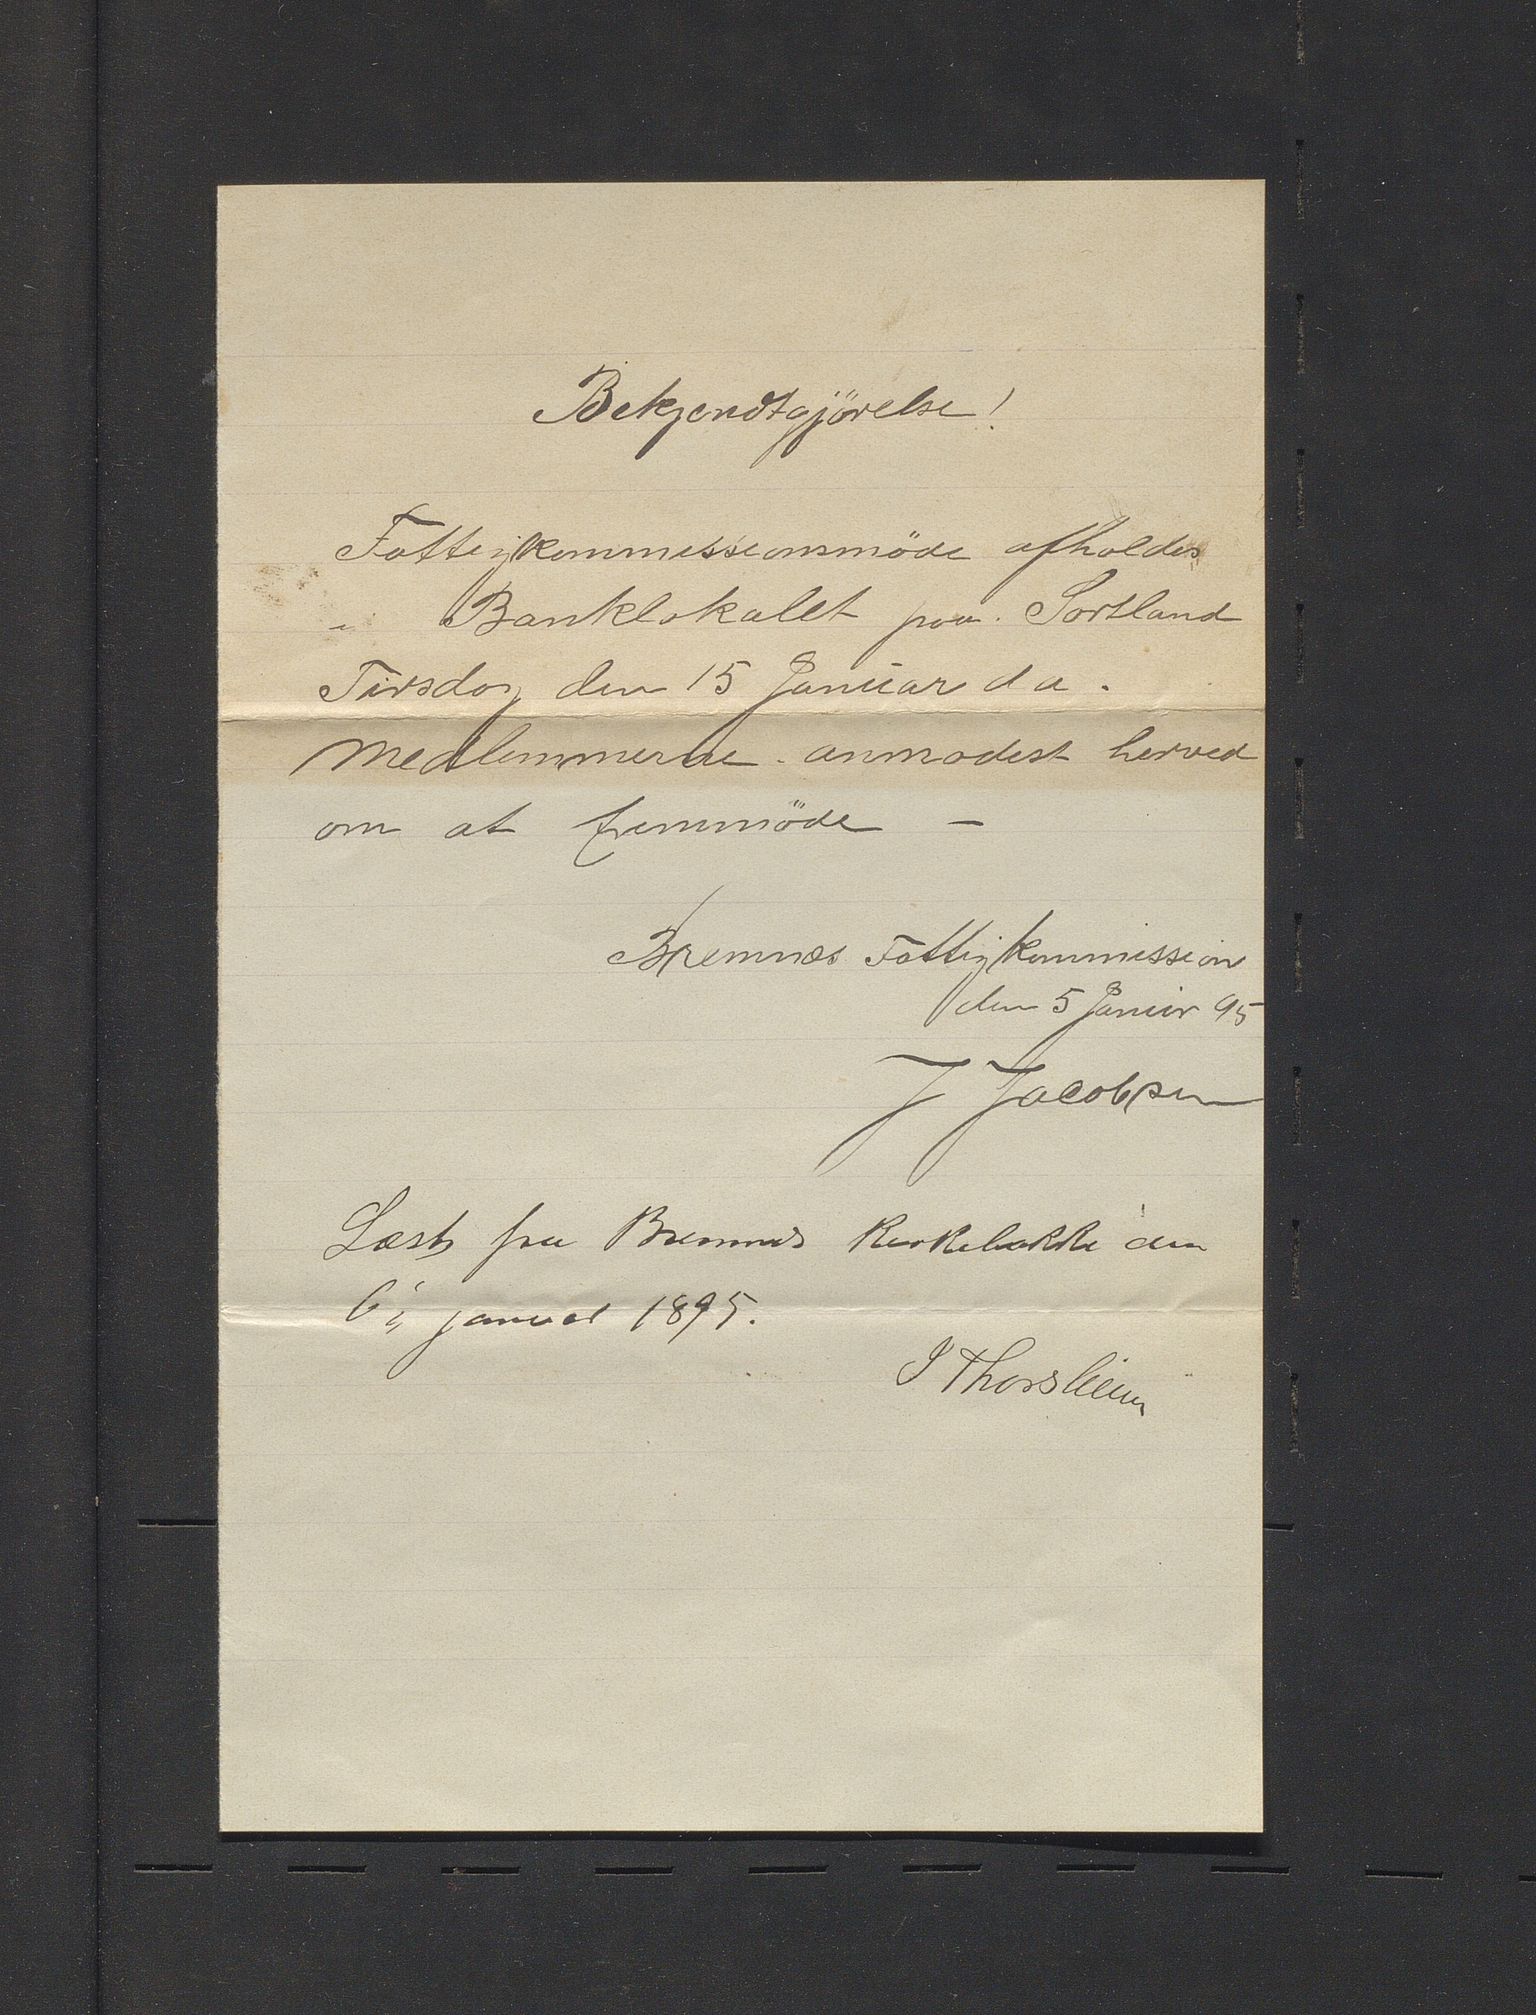 Bekjendtgjörelse!
Fattigkommissionsmöde afholdes
i Banklokalet paa Sortland
Tirsdag den 15 Januar d a.
Medlemmerne anmodest herved
om at fremmöde –
Bremnes Fattigkommission
den 5 Januar 95
J Jacobsen
Læst fra Bremnes Kirkebakke den
6/1 januar 1895.
J Thorsheim